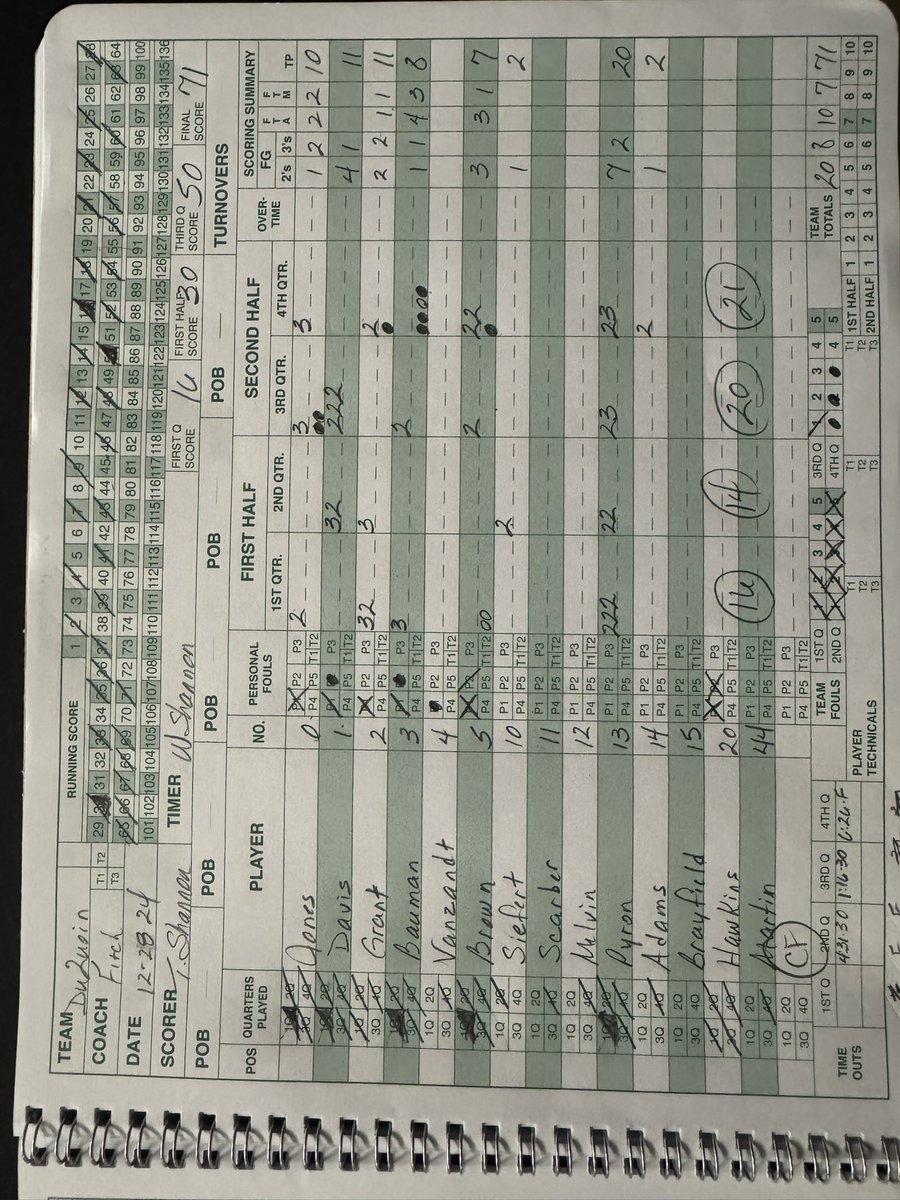 TEAM DuQuoin
COACH Fitch T1 T2 T3
DATE 12-28-24
SCORER T. Shannon TIMER W Shannon
RUNNING SCORE
1 2 3 4 5 6 7 8 9 10 11 12 13 14 15 16 17 18 19 20 21 22 23 24 25 26 27 28
29 30 31 32 33 34 35 36 37 38 39 40 41 42 43 44 45 46 47 48 49 50 51 52 53 54 55 56 57 58 59 60 61 62 63 64
65 66 67 68 69 70 71 72 73 74 75 76 77 78 79 80 81 82 83 84 85 86 87 88 89 90 91 92 93 94 95 96 97 98 99 100
101 102 103 104 105 106 107 108 109 110 111 112 113 114 115 116 117 118 119 120 121 122 123 124 125 126 127 128 129 130 131 132 133 134 135 136
FIRST Q SCORE 16 FIRST HALF SCORE 30 THIRD Q SCORE 50 FINAL SCORE 71
POB POB POB POB POB TURNOVERS
POS QUARTERS PLAYED PLAYER NO. PERSONAL FOULS FIRST HALF SECOND HALF OVER-TIME SCORING SUMMARY
1ST QTR. 2ND QTR. 3RD QTR. 4TH QTR. FG 2's 3's FTA FTM TP
1Q 2Q 3Q 4Q Jones 0 P1 P2 P3 P4 P5 T1 T2 2 3 3 1 2 2 2 10
1Q 2Q 3Q 4Q Davis 1 P1 P2 P3 P4 P5 T1 T2 32 222 4 1 11
1Q 2Q 3Q 4Q Grant 2 P1 P2 P3 P4 P5 T1 T2 32 3 2 2 2 1 1 11
1Q 2Q 3Q 4Q Bauman 3 P1 P2 P3 P4 P5 T1 T2 3 2 1 1 4 3 8
1Q 2Q 3Q 4Q Vanzandt 4 P1 P2 P3 P4 P5 T1 T2
1Q 2Q 3Q 4Q Brown 5 P1 P2 P3 P4 P5 T1 T2 00 2 22 3 3 1 7
1Q 2Q 3Q 4Q Siefert 10 P1 P2 P3 P4 P5 T1 T2 2 1 2
1Q 2Q 3Q 4Q Scarber 11 P1 P2 P3 P4 P5 T1 T2
1Q 2Q 3Q 4Q Melvin 12 P1 P2 P3 P4 P5 T1 T2
1Q 2Q 3Q 4Q Pyron 13 P1 P2 P3 P4 P5 T1 T2 222 22 23 23 7 2 20
1Q 2Q 3Q 4Q Adams 14 P1 P2 P3 P4 P5 T1 T2 2 1 2
1Q 2Q 3Q 4Q Brayfield 15 P1 P2 P3 P4 P5 T1 T2
1Q 2Q 3Q 4Q Hawkins 20 P1 P2 P3 P4 P5 T1 T2
1Q 2Q 3Q 4Q Martin 44 P1 P2 P3 P4 P5 T1 T2 16 14 20 21
1Q 2Q 3Q 4Q CF P1 P2 P3 P4 P5 T1 T2
TIME OUTS 1ST Q 2ND Q 3RD Q 4TH Q
4:31.30 1:16-30 6:26.F
TEAM FOULS 1ST Q 1 2 3 4 5 3RD Q 1 2 3 4 5
2ND Q 1 2 3 4 5 4TH Q 1 2 3 4 5
TEAM TOTALS 20 8 10 7 71
PLAYER TECHNICALS T1 T2 T3 T1 T2 T3 T1 T2 T3
1ST HALF 1 2 3 4 5 6 7 8 9 10
2ND HALF 1 2 3 4 5 6 7 8 9 10